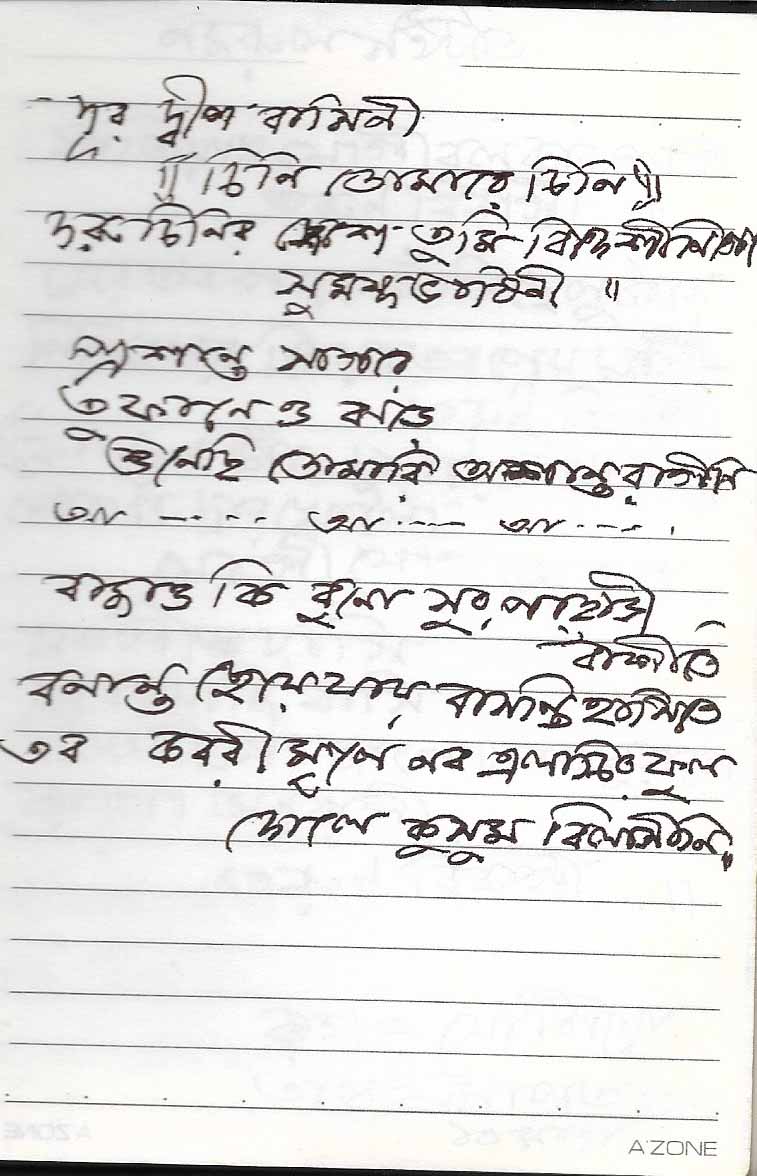 দূর দ্বীপ বাসিনী
॥ চিনি তোমারে চিনি ॥
দারুচিনির দেশে তুমি বিদেশীনিগো
সুমন্দভাষিনী ॥
প্রশান্ত সাগরে
তুফানেও ঝড়ে
শুনেছি তোমারি অশান্ত রাগীনি
আ ---- আ ---- আ ----
বাজাও কি বুনো সুর পাহাড়ী
বাঁশীতে
বনান্ত ছেয়ে যায় বাসন্তি হাসিতে
তব কবরী মূলে নব এলাচির ফুল
দোলে কুসুম বিলাসীনি
A'ZONE